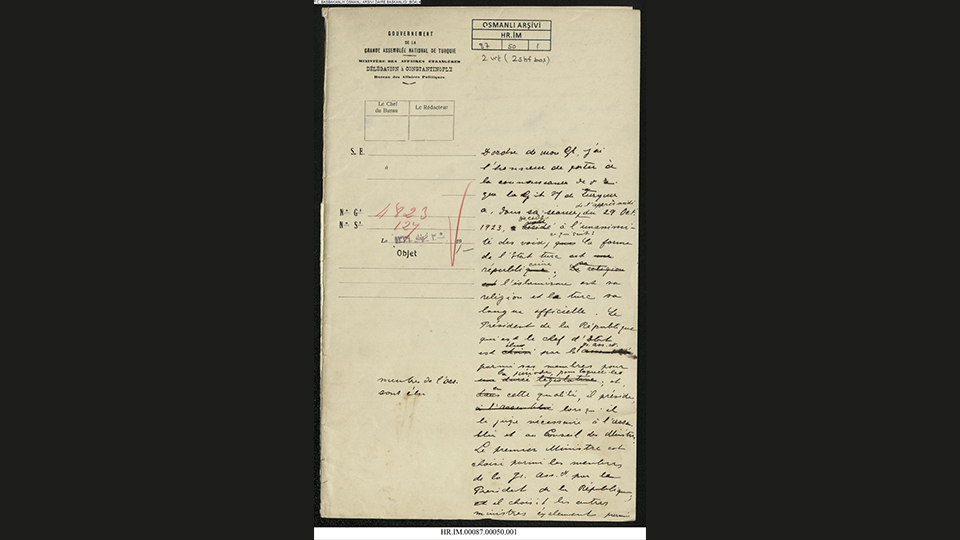 T.C. BAŞBAKANLIK OSMANLI ARŞİVİ DAİRE BAŞKANLIĞI (BOA)
OSMANLI ARŞİVİ
HR.İM
87 50 1
GOUVERNEMENT
DE LA
GRANDE ASSEMBLÉE NATIONAL DE TURQUIE
MINISTÈRE DES AFFAIRES ÉTRANGÈRES
DÉLÉGATION à CONSTANTINOPLE
Bureau des Affaires Politiques
Le Chef du Bureau
Le Rédacteur
S. E.
à
4823
124
Le
Objet
D'ordre de mon Gt, j'ai
l'honneur de porter à
la connaissance de
que la G de Turquie
de l'après midi
a, dans sa séance du 29 Oct.
1923, décidé à l'unanimi-
té des voix, que la forme
de l'Etat turc est une
républi ; la religion
est l'islamisme est sa
religion et la turc sa
langue officielle. Le
Président de la République
qui est le chef d'Etat
élu
est choisi par l'
parmi ses membres pour
la période pour laquelle les
membre de l'ass.
sont élus
une durée législative ; et,
dans cette qualité, il préside,
à l'assemblée lorsqu'il
le juge nécessaire à l'assem-
blée et au Conseil des Ministres.
Le premier Ministre est
choisi parmi les membres
de la Gr. Ass. par le
President de la République,
et il choisit les autres
ministres également parmi
HR.IM.00087.00050.001